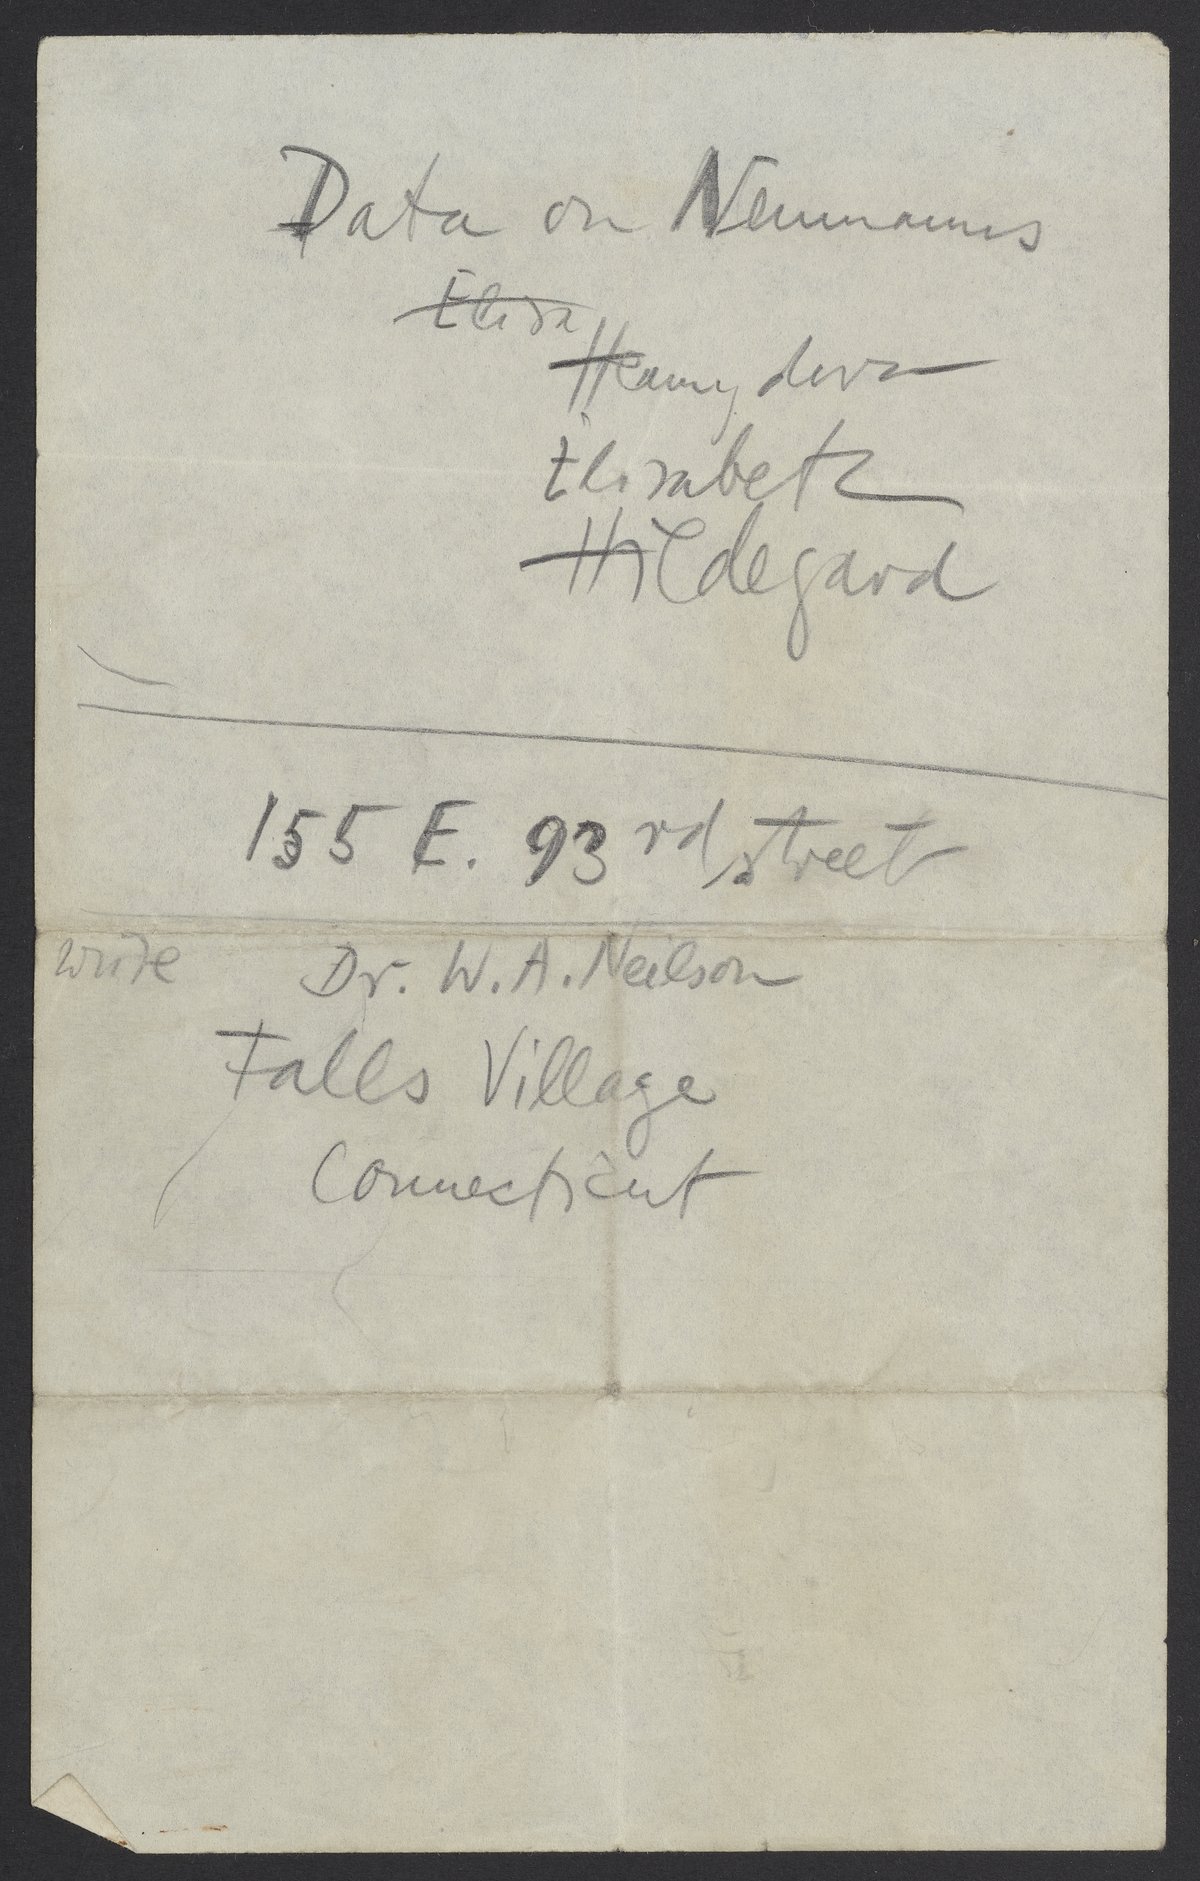 Data on Neumanns
Eliza
Elisabeth
Hildegard
155 E. 93rd street
write Dr. W. A. Neilson
Falls Village
Connecticut